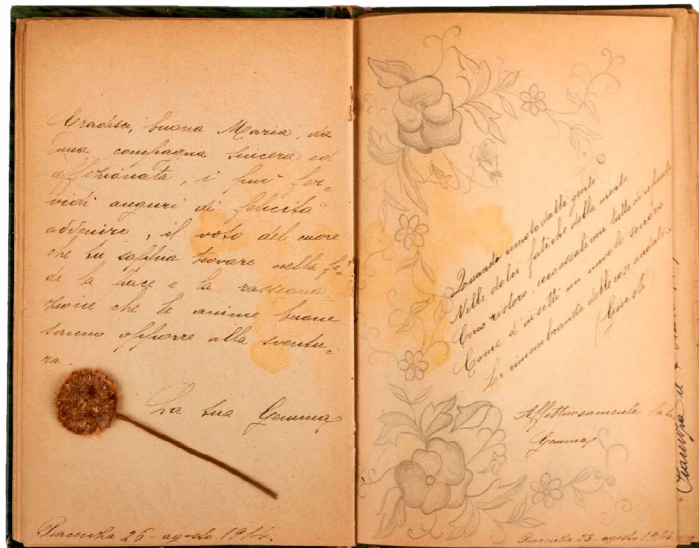 Gradisci, buona Maria, da
una compagna sincera ed
affezionata, i più fer-
vidi auguri di felicità
avvenire, il voto del cuore
che tu sappia trovare nella fe-
de la pace e la rassegna-
zione che le anime buone
sanno opporre alla sventu-
ra.
La tua Gemma
Piacenza 25 agosto 1914.
Quando remoto dalla gente
Nelle dolci fatiche della mente
Cerco ristoro,
Come d'insetti un nuvolo sonoro
Le rimembranze delle cose andate.
Affettuosamente la tua
Gemma
Piacenza 25 agosto 1914
Piacenza